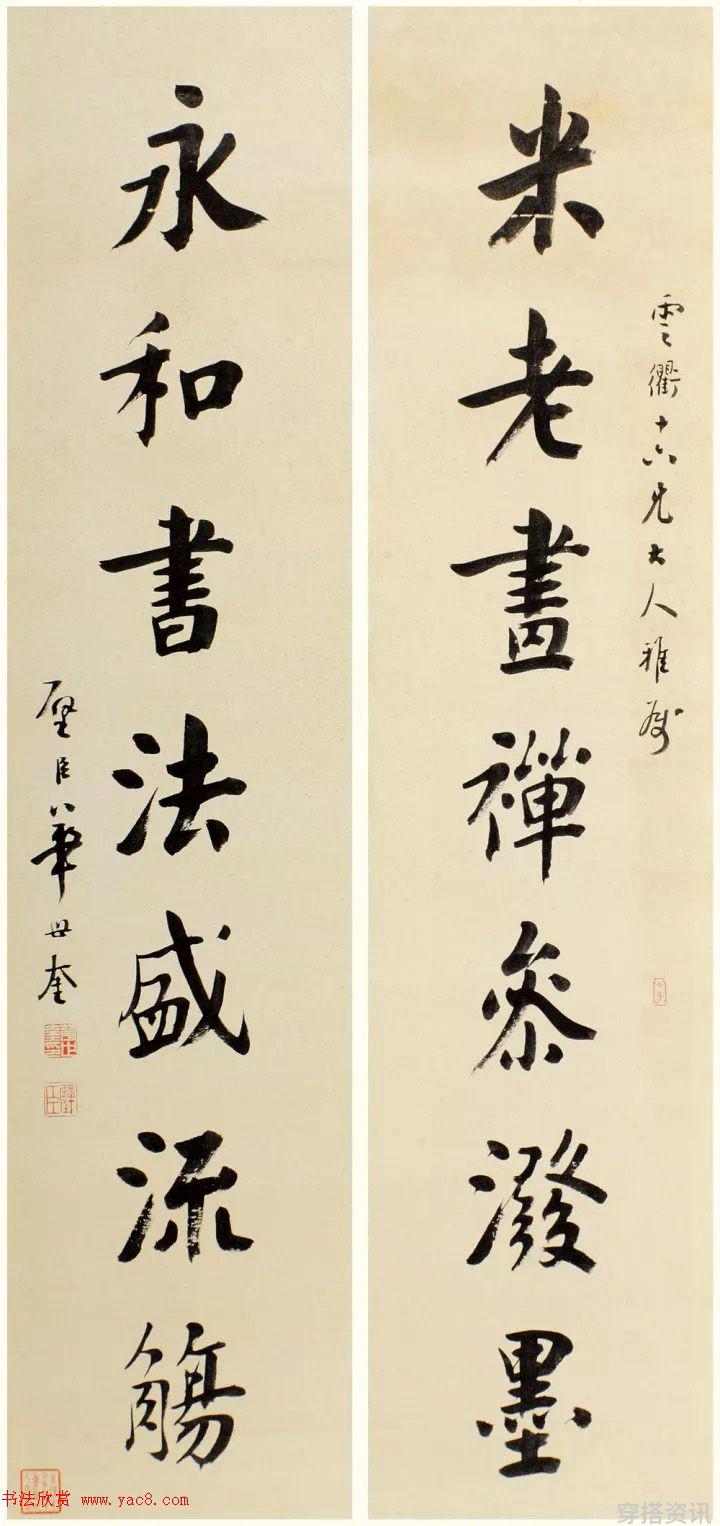 雲衢十六兄大人雅屬
米老畫禪參潑墨
永和書法盛流觴
壁臣華世奎
壁臣
书法欣赏 www.yac8.com
穿搭资讯